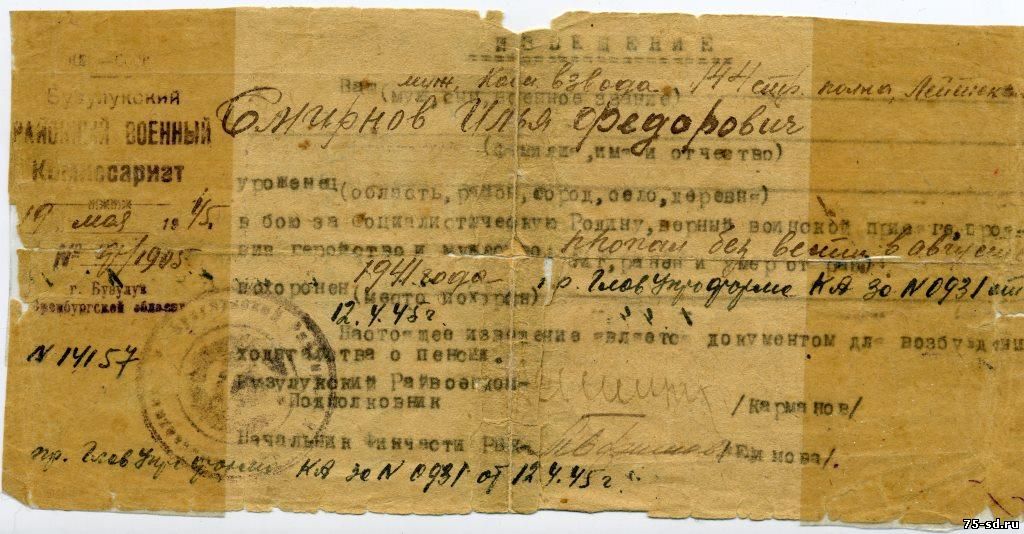 ИЗВЕЩЕНИЕ
НКО — СССР
Бузулукский
РАЙОННЫЙ ВОЕННЫЙ
Комиссариат
19 мая 1945
№ 1905
г. Бузулук
Оренбургской области
N 14157
Ваш муж, Ком взвода 144 стр. полка, Лейтен
(муж, сын военное звание)
Смирнов Илья Федорович
(фамилия, имя и отчество)
уроженец (область, район, город, село, деревня)
в бою за Социалистическую Родину, верный воинской присяге, проя-
вив геройство и мужество, пропал без вести в август
1941 года ранен и умер от ран
похоронен (место похорон) пр. ГлавУпроформа КА за N 0931 от
12.4.45г.
Настоящее извещение является документом для возбуждения
ходатайства о пенсии.
Бузулукский Райвоенком-
Подполковник /Карманов/
Начальник Финчасти РВК- /Ефимова/.
пр. ГлавУпроформа КА за N 0931 от 12.4.45г.
75-sd.ru